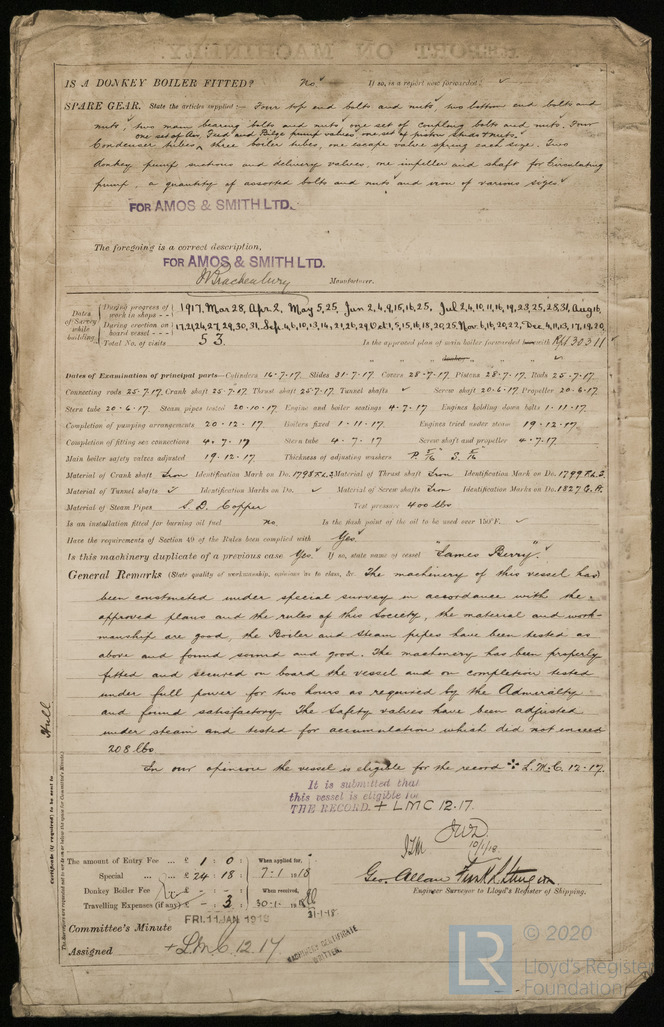 REPORT ON MACHINERY.
IS A DONKEY BOILER FITTED? No If so, is a report now forwarded?
SPARE GEAR. State the articles supplied:— Four top end bolts and nuts, two bottom end bolts and
nuts, two main bearing bolts and nuts, one set of coupling bolts and nuts, Four
one set of Air, Feed and Bilge pump valves, one set of piston studs & nuts.
Condenser tubes, three boiler tubes, one escape valve spring each size. Two
donkey pump suctions and delivery valves, one impeller and shaft for circulating
pump, a quantity of assorted bolts and nuts and iron of various sizes
FOR AMOS & SMITH LTD.
The foregoing is a correct description,
FOR AMOS & SMITH LTD.
Brackenbury Manufacturer.
Dates of Survey while building
During progress of work in shops - - 1917. Mar 28, Apr. 2, May 5, 25, Jun 2, 4, 9, 15, 16, 25, Jul 2, 4, 10, 11, 16, 19, 23, 25, 28, 31, Aug 16,
During erection on board vessel - - - 17, 21, 24, 27, 29, 30, 31, Sep. 4, 6, 10, 13, 14, 21, 26, 29, Oct 1, 5, 15, 16, 18, 20, 25, Nov. 6, 16, 20, 22, Dec. 4, 11, 13, 17, 19, 20
Total No. of visits 53. Is the approved plan of main boiler forwarded herewith Rpt 30311
" " " donkey " " "
Dates of Examination of principal parts—Cylinders 16-7-17 Slides 31-7-17 Covers 28-7-17 Pistons 28-7-17 Rods 25-7-17
Connecting rods 25-7-17 Crank shaft 25-7-17 Thrust shaft 25-7-17 Tunnel shafts Screw shaft 20-6-17 Propeller 20-6-17
Stern tube 20-6-17 Steam pipes tested 20-10-17 Engine and boiler seatings 4-7-17 Engines holding down bolts 1-11-17
Completion of pumping arrangements 20-12-17 Boilers fixed 1-11-17 Engines tried under steam 19-12-17
Completion of fitting sea connections 4-7-17 Stern tube 4-7-17 Screw shaft and propeller 4-7-17
Main boiler safety valves adjusted 19-12-17 Thickness of adjusting washers
Material of Crank shaft Iron Identification Mark on Do. Material of Thrust shaft Iron Identification Mark on Do. 1799 F.L.S.
Material of Tunnel shafts Identification Marks on Do. Material of Screw shafts Iron Identification Marks on Do. 1827 G.A.
Material of Steam Pipes S. D. Copper Test pressure 400 lbs
Is an installation fitted for burning oil fuel no. Is the flash point of the oil to be used over 150°F.
Have the requirements of Section 49 of the Rules been complied with Yes.
Is this machinery duplicate of a previous case Yes If so, state name of vessel "James Berry".
General Remarks (State quality of workmanship, opinions as to class, &c. The machinery of this vessel has
been constructed under special survey in accordance with the
approved plans and the rules of this Society, the material and work-
manship are good, the Boiler and Steam pipes have been tested as
above and found sound and good. The machinery has been properly
fitted and secured on board the vessel and on completion tested
under full power for two hours as required by the Admiralty
and found satisfactory. The Safety valves have been adjusted
under steam and tested for accumulation which did not exceed
208 lbs
In our opinion the vessel is eligible for the record L.M.C. 12-17.
It is submitted that
this vessel is eligible for
THE RECORD. + LMC 12.17.
JWD
10/1/18.
The amount of Entry Fee ... £ 1 : 0 : When applied for,
Special ... £ 24 : 18 : 7-1-1918
Donkey Boiler Fee ... £ - : - : When received,
Travelling Expenses (if any) £ - : 3 : 30-1-1918
31-1-18
Geo. Allan Frank L. Sturgeon
Engineer Surveyor to Lloyd's Register of Shipping.
FRI. 11 JAN 1918
Committee's Minute
Assigned + L.M.C. 12.17
MACHINERY CERTIFICATE
WRITTEN.
Hull
Certificate (if required) to be sent to
(The Surveyors are requested not to write on or below the space for Committee's Minute.)
LR
© 2020
Lloyd's Register
Foundation